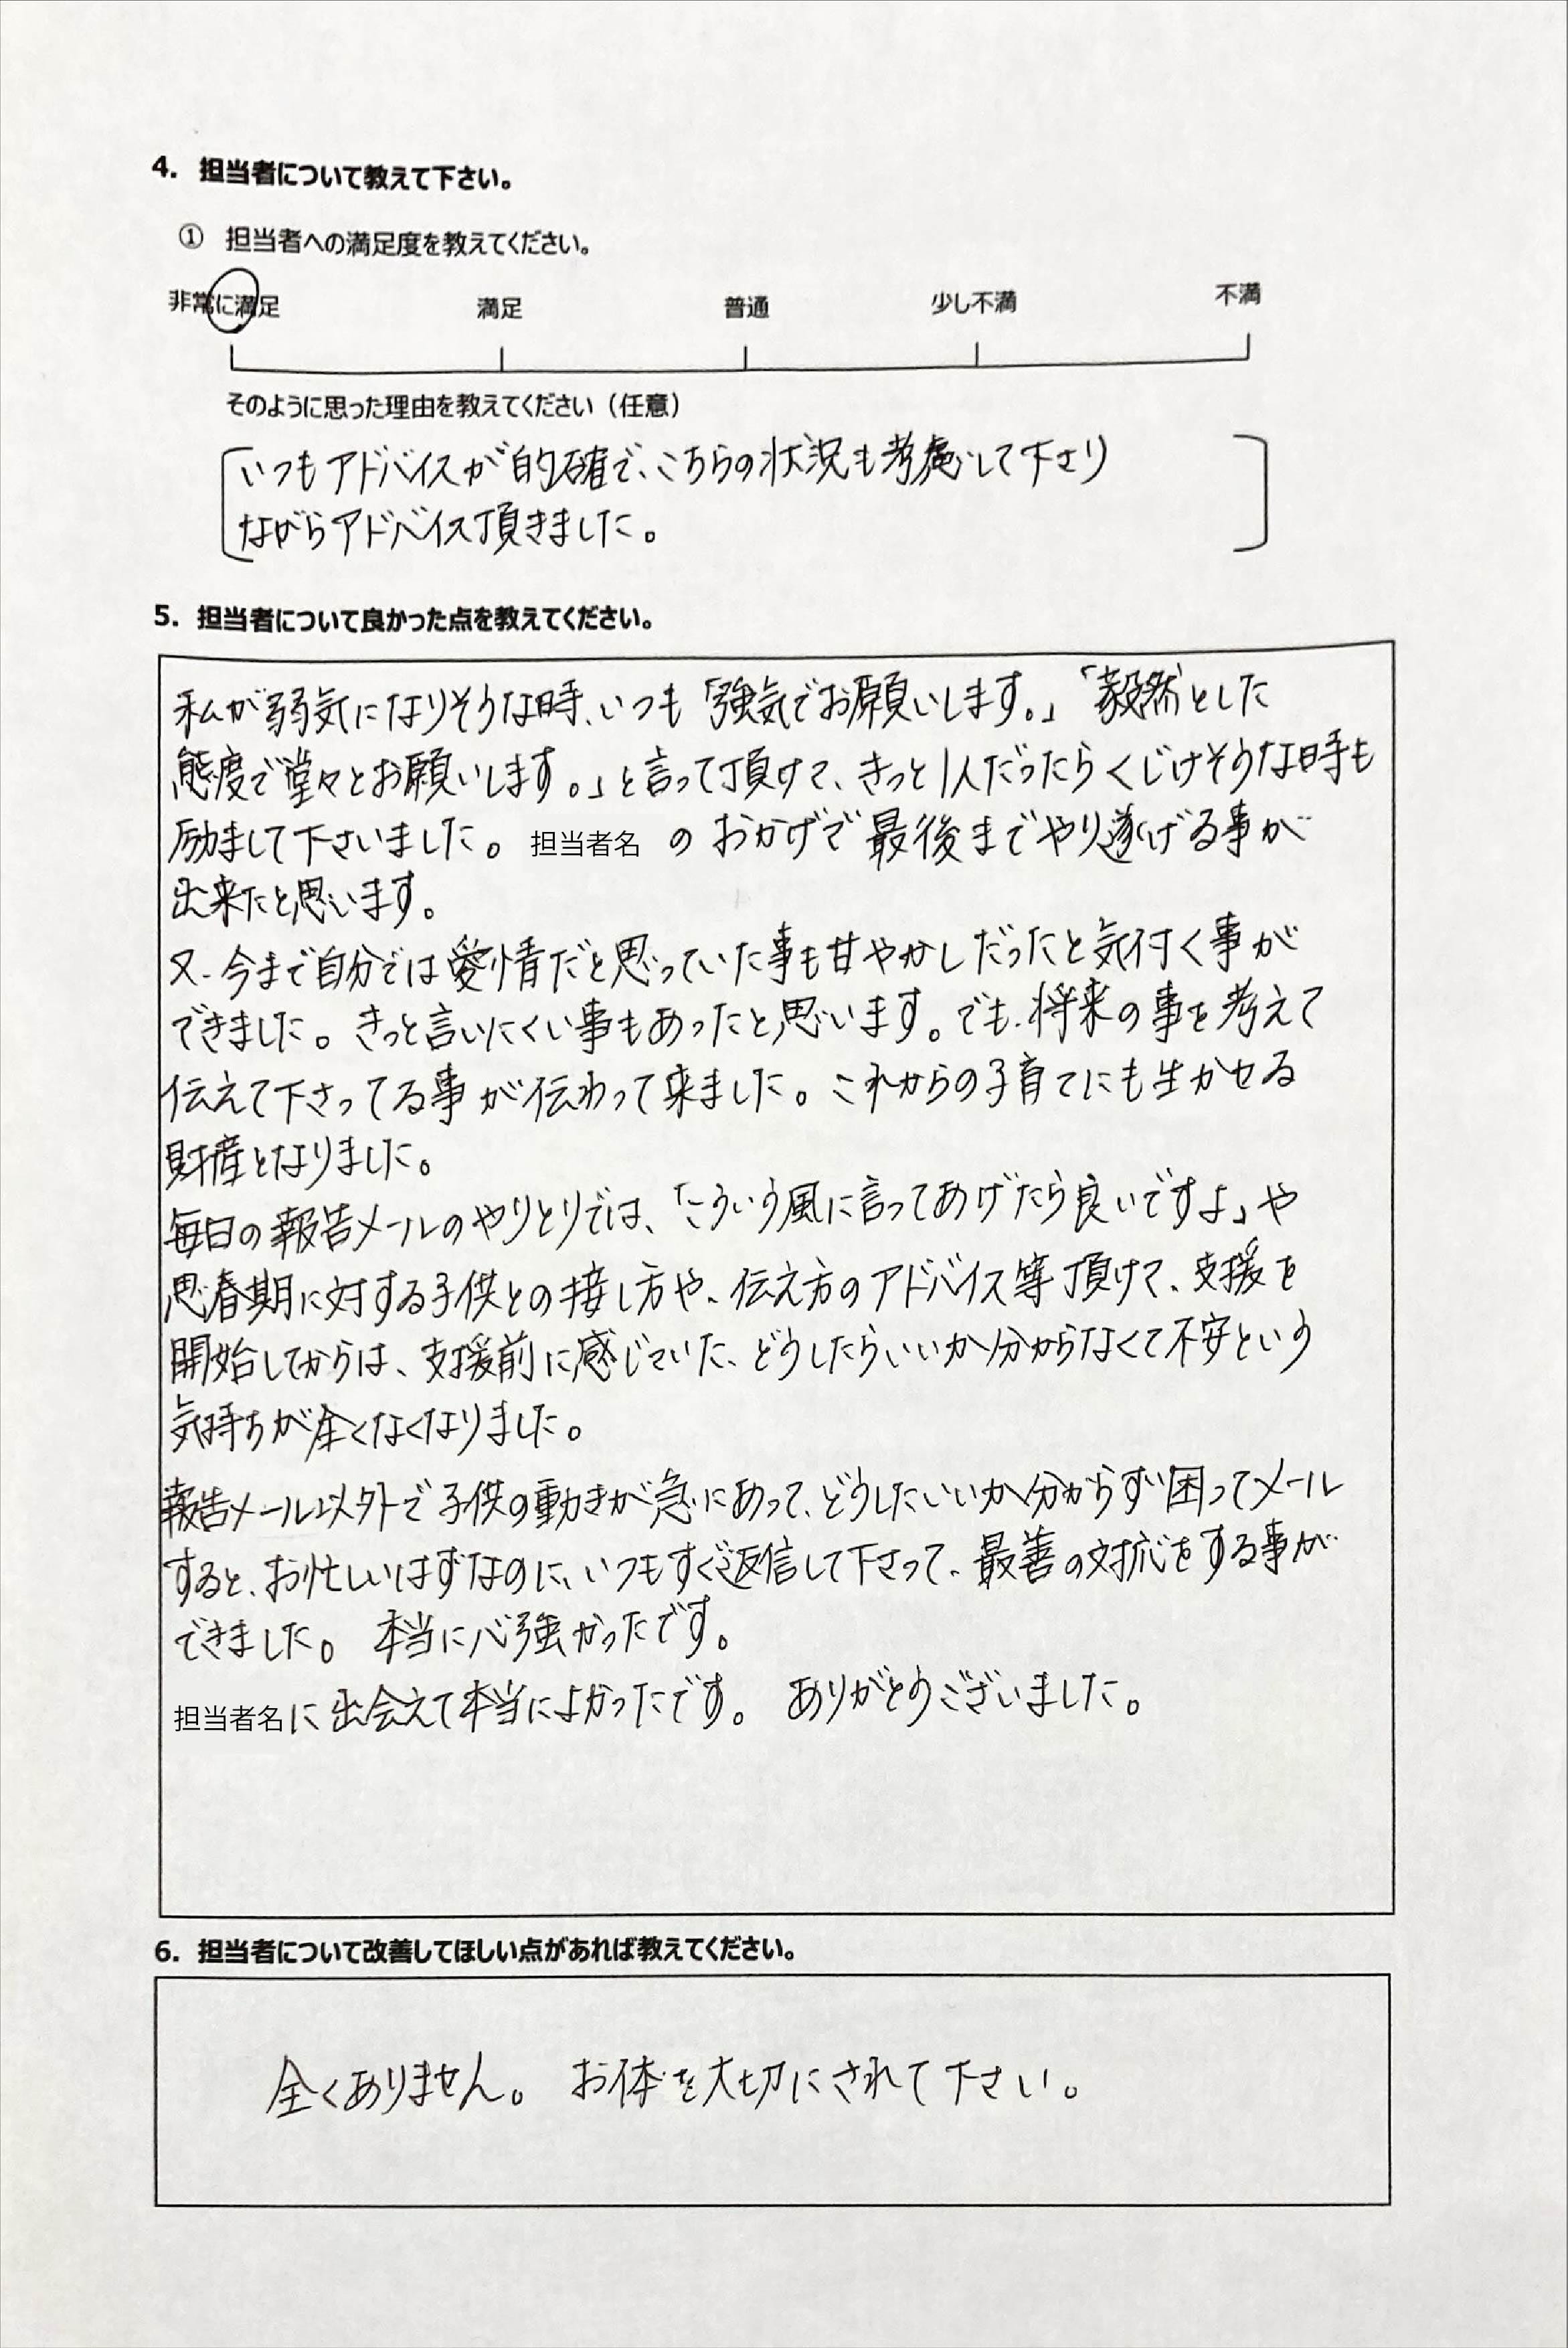 4. 担当者について教えて下さい。
① 担当者への満足度を教えてください。
非常に満足 満足 普通 少し不満 不満
そのように思った理由を教えてください（任意）
いつもアドバイスが的確で、こちらの状況も考慮して下さり
ながらアドバイス頂きました。
5. 担当者について良かった点を教えてください。
私が弱気になりそうな時、いつも「強気でお願いします。」「毅然とした
態度で堂々とお願いします。」と言って頂けて、きっと1人だったらくじけそうな時も
励まして下さいました。 担当者名 の おかげで最後までやり遂げる事が
出来たと思います。
又、今まで自分では愛情だと思っていた事も甘やかしだったと気付く事が
できました。きっと言いにくい事もあったと思います。でも、将来の事を考えて
伝えて下さってる事が伝わって来ました。これからの子育てにも生かせる
財産となりました。
毎日の報告メールのやりとりでは、「こういう風に言ってあげたら良いですよ」や
思春期に対する子供との接し方や、伝え方のアドバイス等頂けて、支援を
開始してからは、支援前に感じていた、どうしたらいいか分からなくて不安という
気持ちが全くなくなりました。
報告メール以外で子供の動きが急にあって、どうしたいいか分からず困ってメール
すると、お忙しいはずなのに、いつもすぐ返信して下さって、最善の対応をする事が
できました。 本当に心強かったです。
担当者名に出会えて本当によかったです。 ありがとうございました。
6. 担当者について改善してほしい点があれば教えてください。
全くありません。 お体を大切にされて下さい。